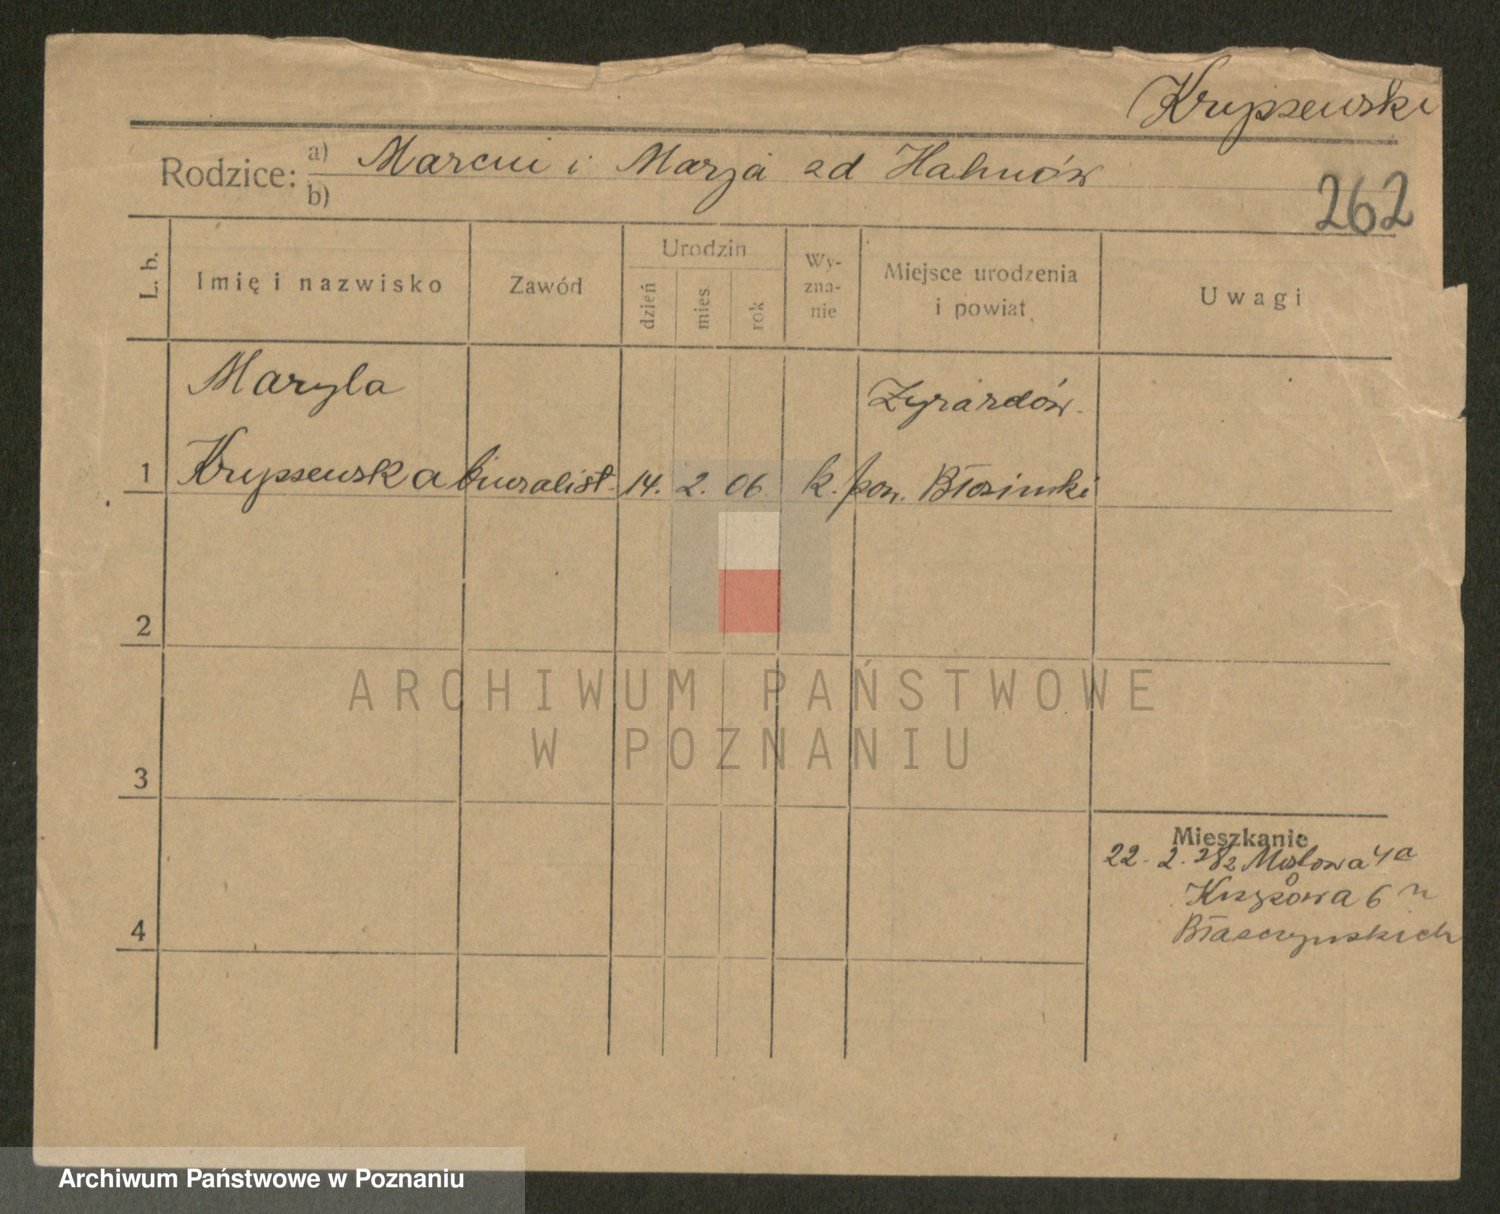 Krypszewski
Rodzice: a) Marcin i Marja z d Hahnów
b)
262
L. b.
Imię i nazwisko
Zawód
Urodzin
dzień
mies.
rok
Wy-
zna-
nie
Miejsce urodzenia
i powiat
Uwagi
Maryla
Żyrardów.
1 biuralist. 14. 2. 06. k. pow. Błoński
2
3
4
Mieszkanie
22. 2. 4a
6
Błaszczyńskich
ARCHIWUM PAŃSTWOWE
W POZNANIU
Archiwum Państwowe w Poznaniu